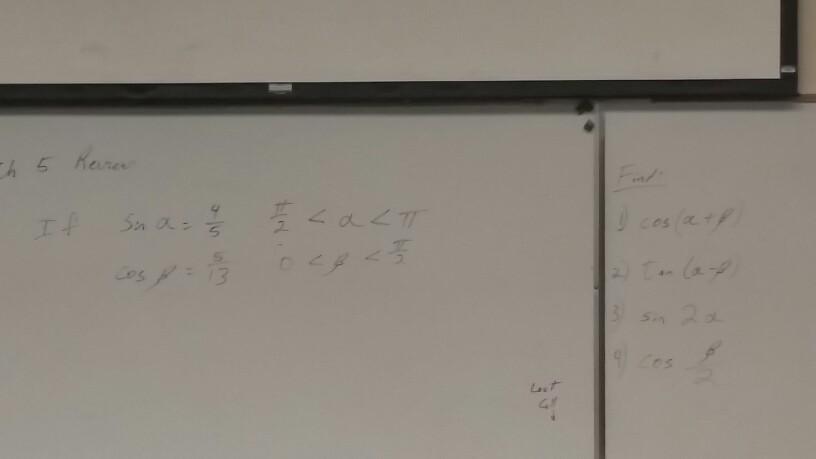 Ch 5 Review
If sin α = 4/5 π/2 < α < π
cos β = 5/13 0 < β < π/2
Find:
1) cos(α+β)
2) Tan(α-β)
3) sin 2α
4) cos β/2